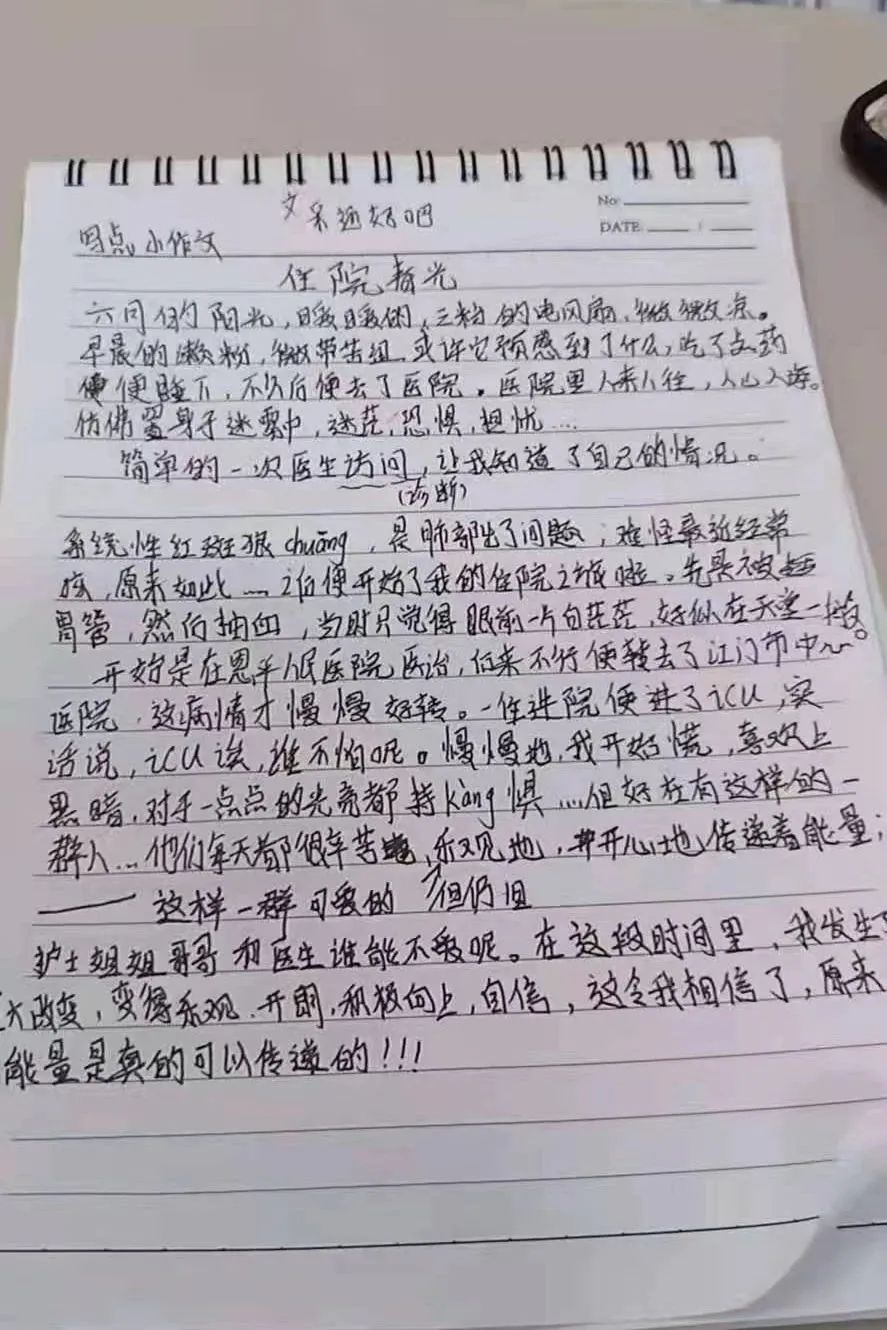 文采还好吧
No:
DATE
写点小作文
住院春光
六月份的阳光,暖暖的,三粉的电风扇,微微凉。
早晨的漱粉,微带苦组,或许它预感到了什么,吃了点药
便便睡下,不久后便去了医院。医院里人来人往,人山人海。
仿佛置身于迷雾中,迷茫,恐惧,担忧...
简单的一次医生访问,让我知道了自己的情况。
(诊断)
系统性红斑狼chuāng,是肺部出了问题;难怪最近经常
咳,原来如此...之后便开始了我的住院之旅啦。先是被插
胃管,然后抽血,当时只觉得眼前一片白茫茫,好似在天堂一般。
开始是在恩平人民医院医治,后来不行便转去了江门市中心
医院,这病情才慢慢好转。一住进院便进了icu,实
话说,icu诶,谁不怕呢。慢慢地,我开始慌,喜欢上
黑暗,对于一点点的光亮都持kàng惧...但好在有这样的一
群人...他们每天都很辛苦,乐观地,开心地传递着能量;
但仍旧
——这样一群可爱的
护士姐姐哥哥和医生谁能不爱呢。在这段时间里,我发生了
大改变,变得乐观、开朗,积极向上,自信,这令我相信了,原来
能量是真的可以传递的!!!